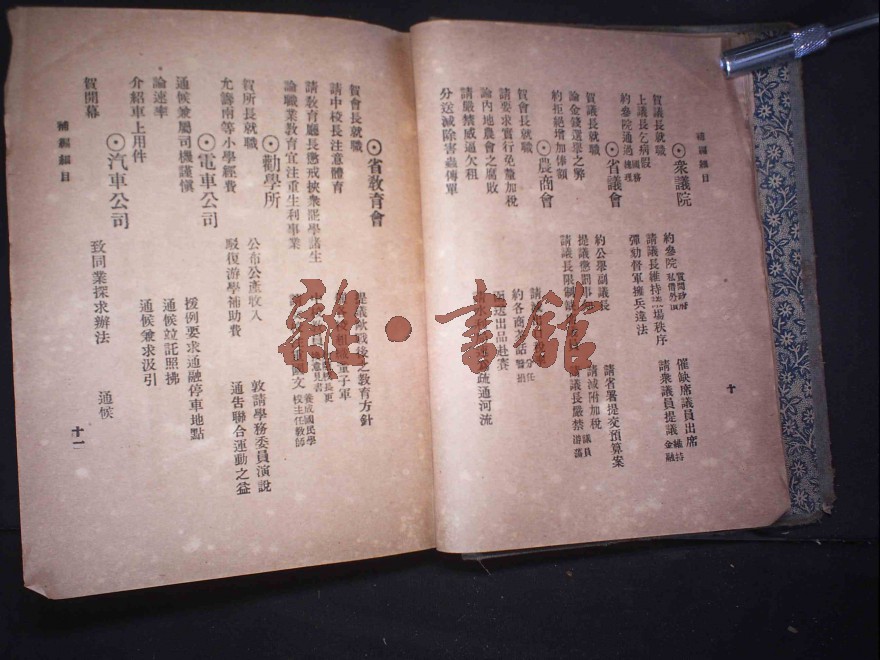 補編細目
十
⊙衆議院
賀議長就職
約參院 質問政府 私借外債
催缺席議員出席
上議長乞病假
請議長維持議場秩序
請衆議員提議 維持金融
約參院通過 國務總理
彈劾督軍擁兵違法
⊙省議會
賀議長就職
約公舉副議長
請省署提交預算案
論金錢選舉之弊
提議懲罰事
請減附加稅
約拒絕增加俸額
請議長限制
議長嚴禁 議員
⊙農商會
賀會長就職
請要求實行免釐加稅
約各商
論內地農會之腐敗
送出品赴賽
請嚴禁威逼欠租
疏通河流
分送滅除害蟲傳單
⊙省敎育會
賀會長就職
提議歐戰後之敎育方針
請中校長注意體育
童子軍
請敎育廳長懲戒挾衆罷學諸生
意見書
養成國民學校主任敎師
論職業敎育宜注重生利事業
文
⊙勸學所
賀所長就職
公布公產收入
敦請學務委員演說
允籌南等小學經費
駁復游學補助費
通告聯合運動之益
⊙電車公司
通候兼屬司機謹愼
援例要求通融停車地點
論速率
通候竝託照拂
介紹車上用件
通候兼求汲引
⊙汽車公司
賀開幕
致同業探求辦法
通候
補編細目
十一
雜·書館